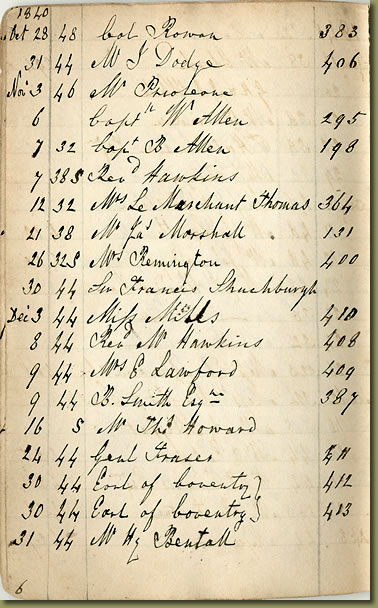 1840
Oct 28 48 Col Rowan 383
31 44 Mr J Dodge 406
Novr 3 46 Mr
6 Captn W Allen 295
7 32 Capt B Allen 198
7 38S Revd Hawkins
12 32 Mrs Le Marchant Thomas 364
21 38 Mr Jas Marshall 131
26 32S Mrs Remington 400
30 44 Sir Francis Shuchburgh
Dec 3 44 Miss Mills 410
8 44 Revd Mr Hawkins 408
9 44 Mrs E Lawford 409
9 44 B. Smith Esqre 387
16 S Mr Thos Howard
24 44 Genl Fraser 411
30 44 Earl of Coventry } 412
30 44 Earl of Coventry } 413
31 44 Mr Hy Bentall
6